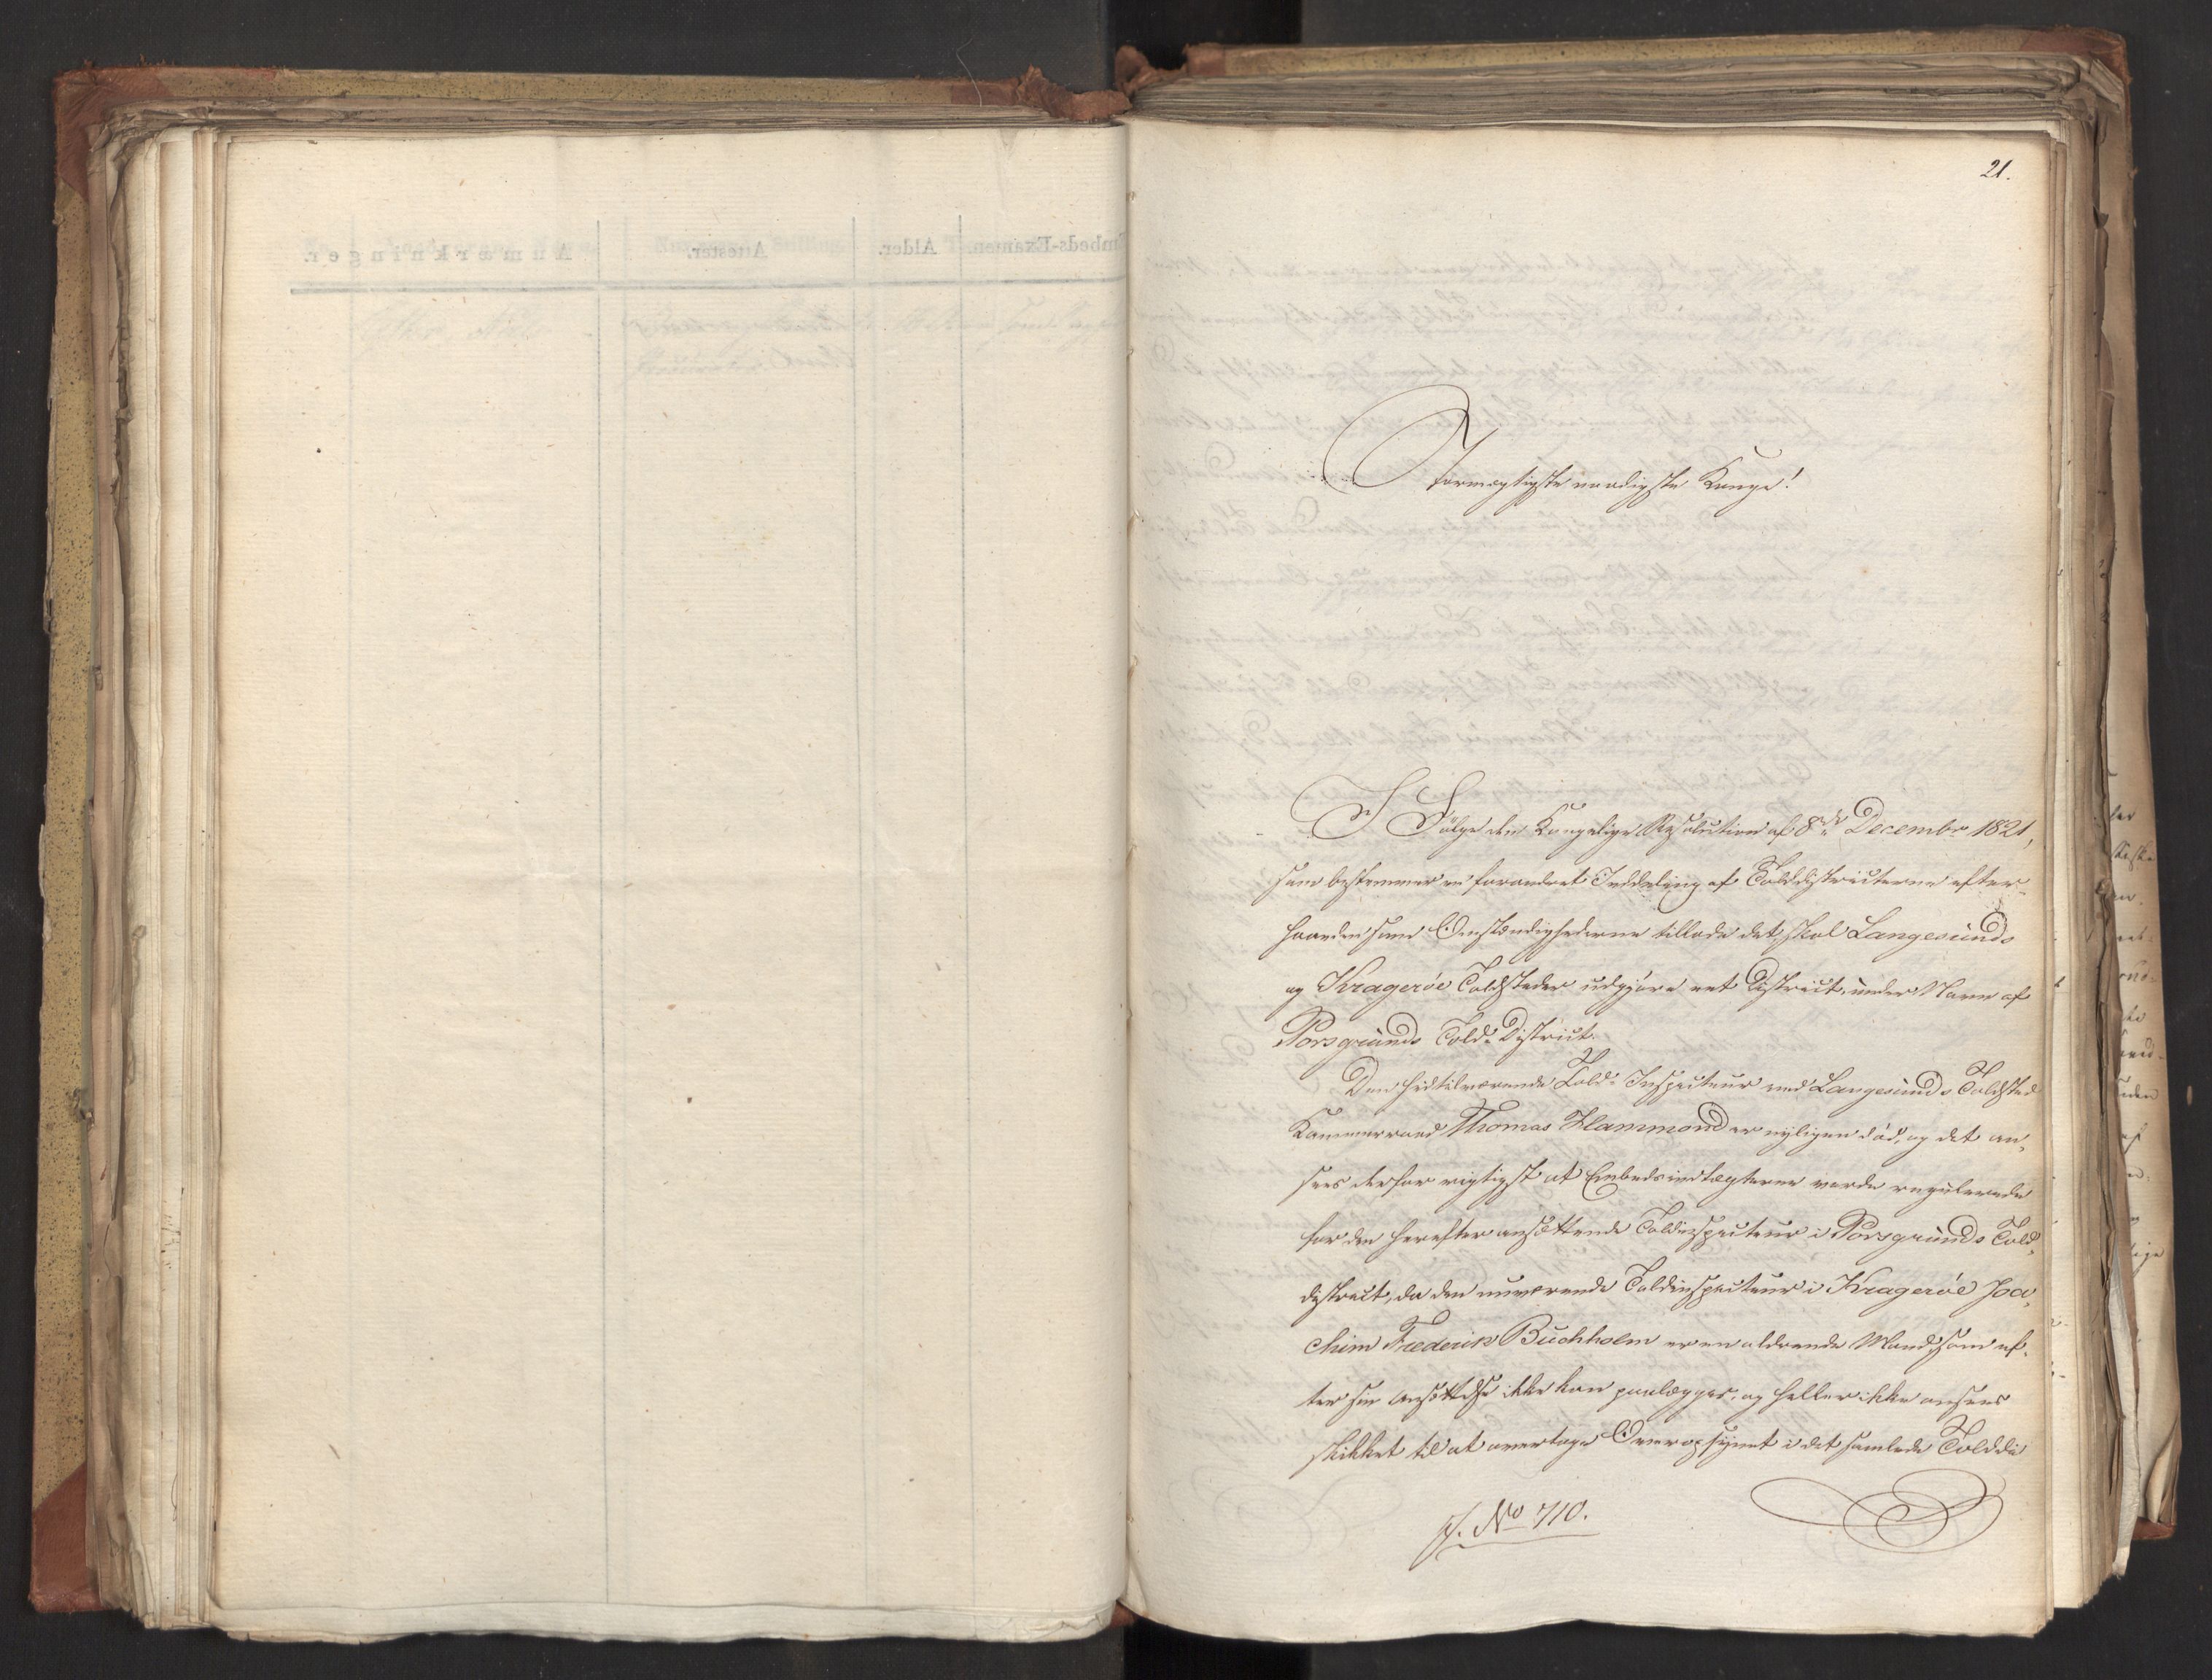 21.
Stormægtigste naadigste Konge!
I Følge den Kongelige Resolution af 8de Decembr 1821,
som bestemmer en forandret Inddeling af Tolddistricterne efter-
haanden som Omstændighederne tillade det, skal Langesunds
og Kragerøe Toldsteder udgjøre eet District, under Navn af
Porsgrunds Told-District.
Den hidtilværende Told-Inspecteur ved Langesunds Toldsted
Kammerraad Thomas Hammond er nyligen død, og det an-
sees derfor rigtigst at Embedsindtægterne vorde regulerede
for den herefter ansættende Toldinspecteur i Porsgrunds Told-
district, da den nuværende Toldinspecteur i Kragerøe Joa-
chim Frederik Buchholm er en aldrende Mand, som ef-
ter sin Ansættelse ikke kan paalægges, og heller ikke ansees
skikket til at overtage Overopsynet i det samlede Tolddi
No 710.